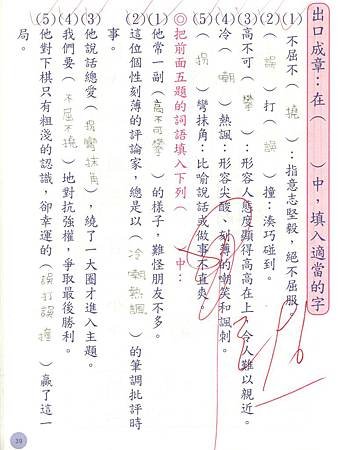 出口成章：在（　　）中，填入適當的字
(1)不屈不（撓）：指意志堅毅，絕不屈服。
(2)（誤）打（誤）撞：湊巧碰到。
(3)高不可（攀）：形容人態度顯得高高在上，令人難以親近。
(4)冷（嘲）熱諷：形容尖酸、刻薄的嘲笑和諷刺。
(5)（拐）彎抹角：比喻說話或做事不直爽。
◎把前面五題的詞語填入下列（　　）中：
(1)他常一副（高不可攀）的樣子，難怪朋友不多。
(2)這位個性刻薄的評論家，總是以（冷嘲熱諷）的筆調批評時
事。
(3)他說話總愛（拐彎抹角），繞了一大圈才進入主題。
(4)我們要（不屈不撓）地對抗強權，爭取最後勝利。
(5)他對下棋只有粗淺的認識，卻幸運的（誤打誤撞）贏了這一
局。
39